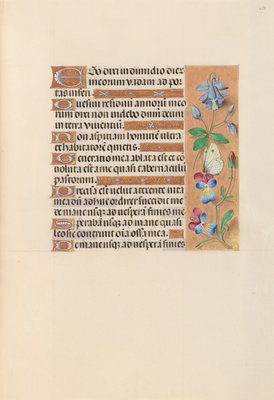 Ego dixi in dimidio dies
meorum vadam ad por
tas inferi.
Quesivi residuū annorū meo
rum dixi non videbo dnm deum
in terra viventiū.
Non aspiciam hominē ultra
et habitatorē quietis.
Generatio mea ablata est et cō
voluta est a me quasi tabernaculū
pastorum.
Precisa est velut a texente vita
mea dū adhuc ordirer succidit me
de mane usqȝ ad vesperā finies me
Sperabā usqȝ ad mane quasi
leo sic contrivit oīa ossa mea.
De mane usqȝ ad vesperā finies